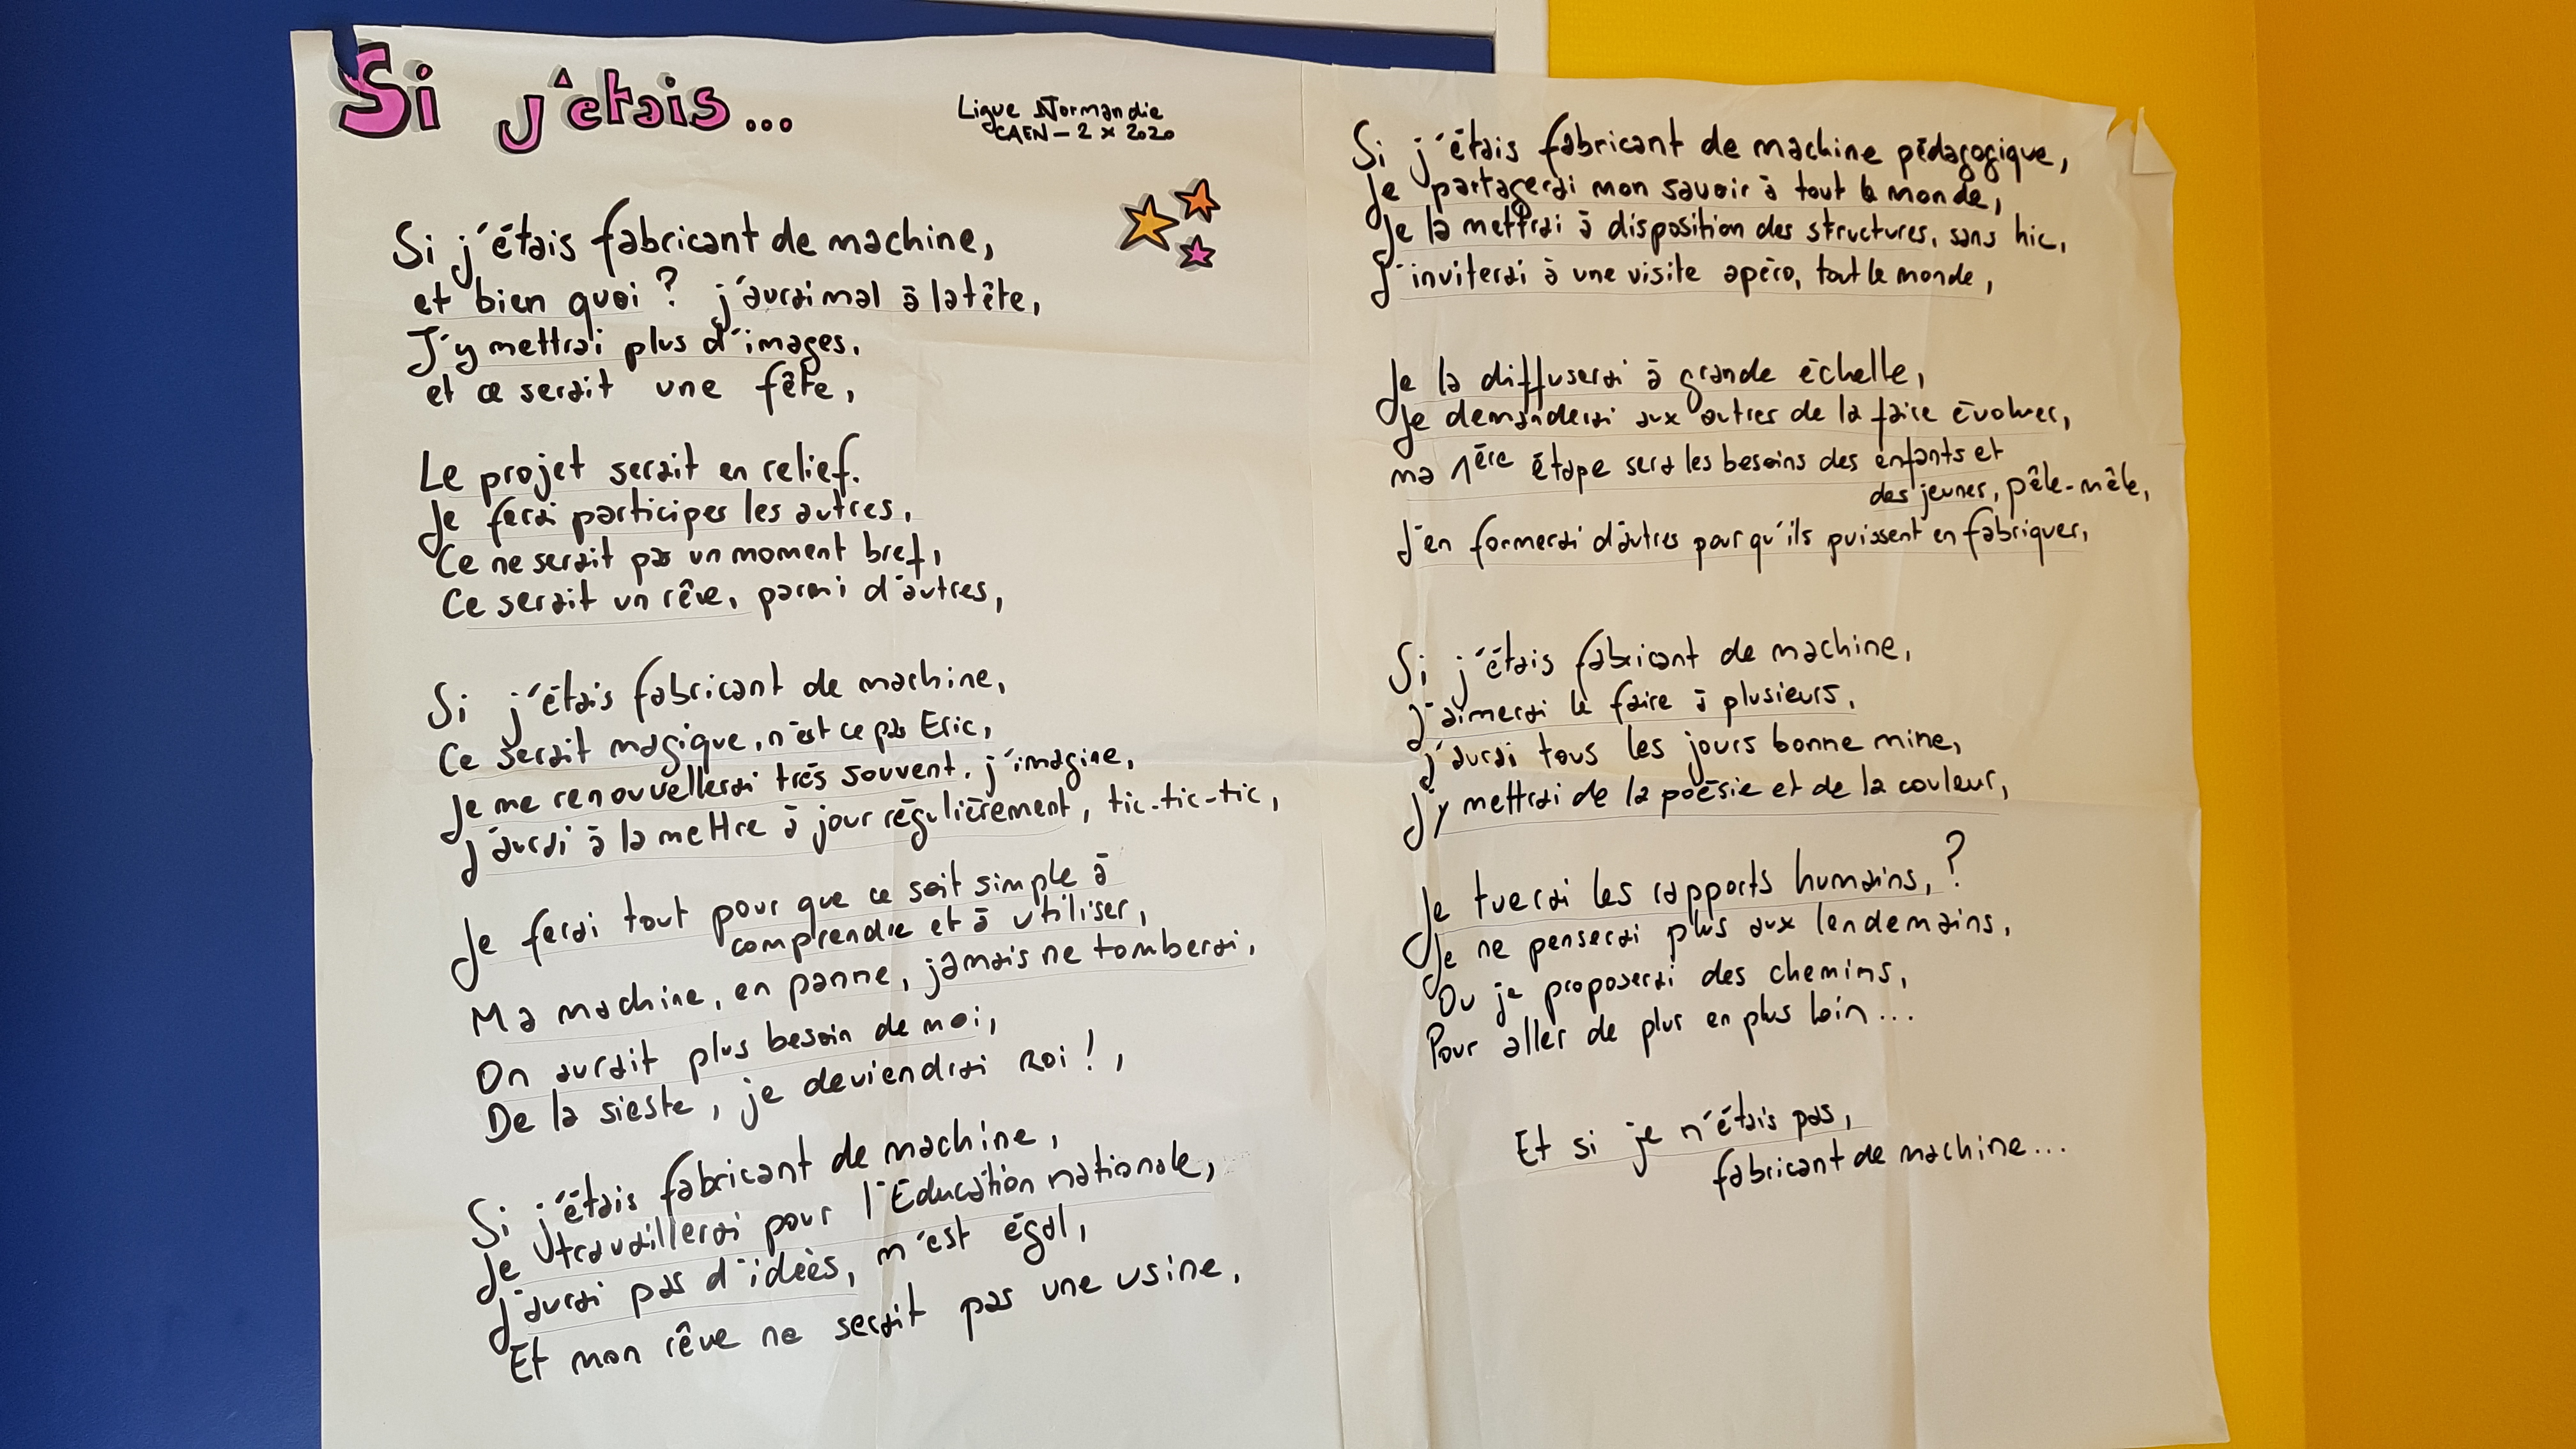 Si j'étais...
Ligue Normandie
CAEN - 2 x 2020
Si j'étais fabricant de machine,
et bien quoi ? j'aurai mal à la tête,
J'y mettrai plus d'images,
et ce serait une fête,
Le projet serait en relief.
Je ferai participer les autres,
Ce ne serait pas un moment bref,
Ce serait un rêve, parmi d'autres,
Si j'étais fabricant de machine,
Ce serait magique, n'est ce pas Eric,
Je me renouvellerai très souvent, j'imagine,
J'aurai à la mettre à jour régulièrement, tic-tic-tic,
Je ferai tout pour que ce soit simple à
comprendre et à utiliser,
Ma machine, en panne, jamais ne tomberai,
On aurait plus besoin de moi,
De la sieste, je deviendrai Roi ! ,
Si j'étais fabricant de machine,
Je travaillerai pour l'Education nationale,
J'aurai pas d'idées, m'est égal,
Et mon rêve ne serait pas une usine,
Si j'étais fabricant de machine pédagogique,
Je partagerai mon savoir à tout le monde,
Je la mettrai à disposition des structures, sans hic,
J'inviterai à une visite apéro, tout le monde,
Je la diffuserai à grande échelle,
Je demanderai aux autres de la faire évoluer,
ma 1ère étape sera les besoins des enfants et
des jeunes, pêle-mêle,
J'en formerai d'autres pour qu'ils puissent en fabriquer,
Si j'étais fabricant de machine,
J'aimerai le faire à plusieurs,
J'aurai tous les jours bonne mine,
J'y mettrai de la poésie et de la couleur,
Je tuerai les rapports humains, ?
Je ne penserai plus aux lendemains,
Ou je proposerai des chemins,
Pour aller de plus en plus loin...
Et si je n'étais pas,
fabricant de machine...